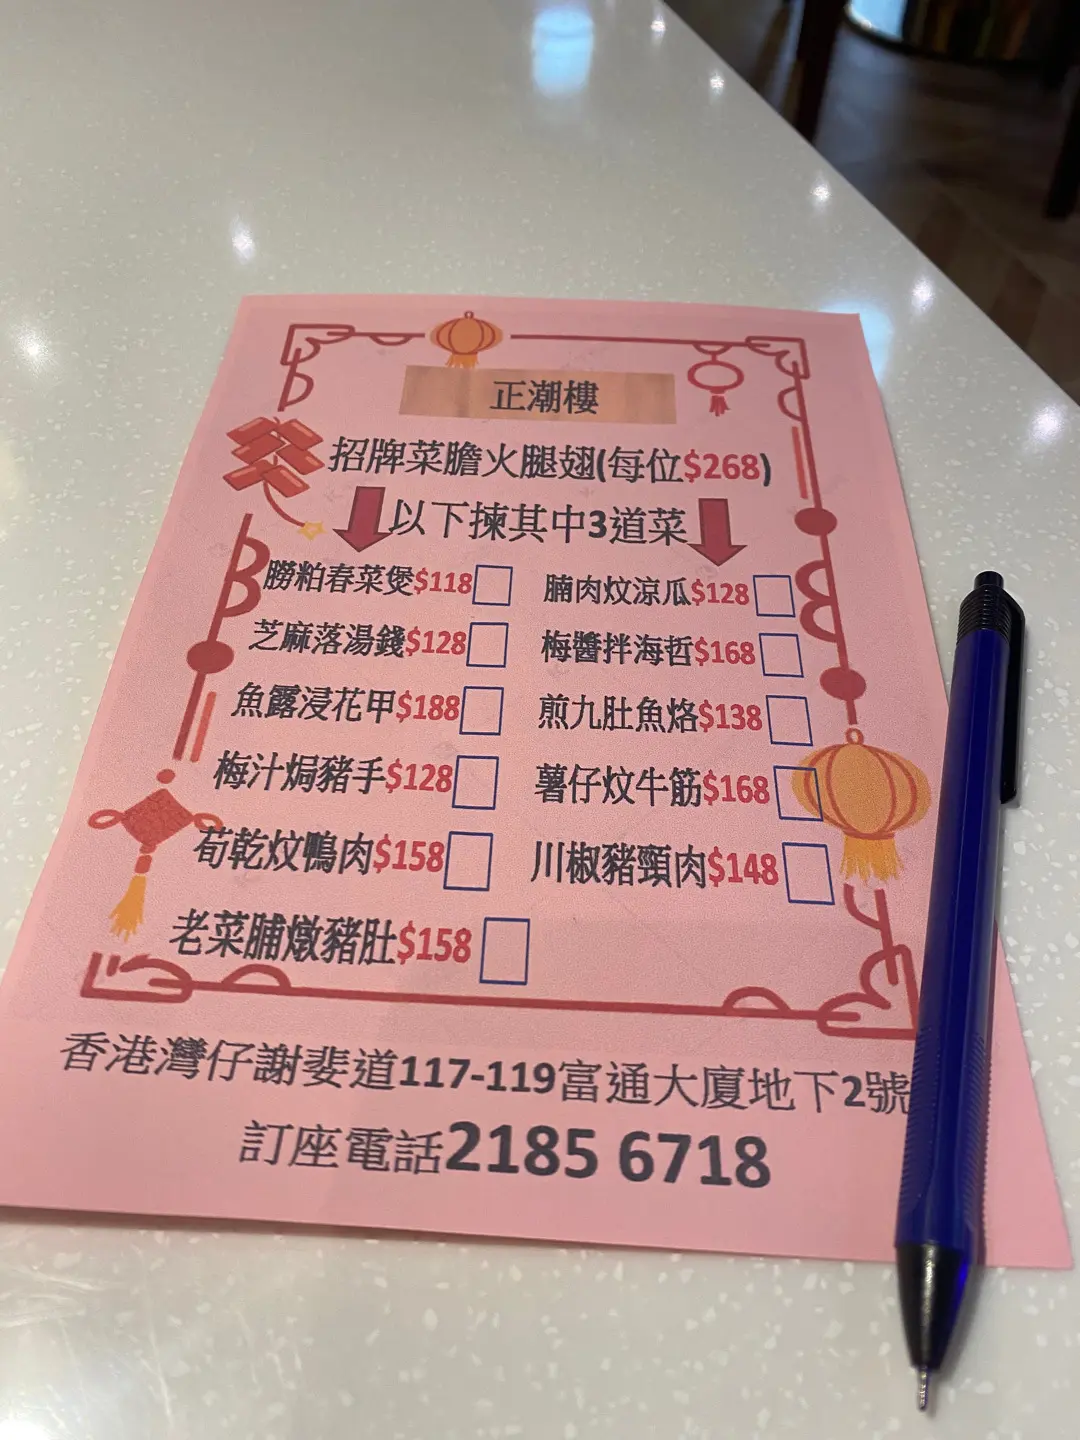 正潮樓
招牌菜膽火腿翅(每位$268)
以下揀其中3道菜
朥粕春菜煲$118
腩肉炆涼瓜$128
芝麻落湯錢$128
梅醬拌海哲$168
魚露浸花甲$188
煎九肚魚烙$138
梅汁焗豬手$128
薯仔炆牛筋$168
荀乾炆鴨肉$158
川椒豬頸肉$148
老菜脯燉豬肚$158
香港灣仔謝斐道117-119富通大廈地下2號
訂座電話2185 6718